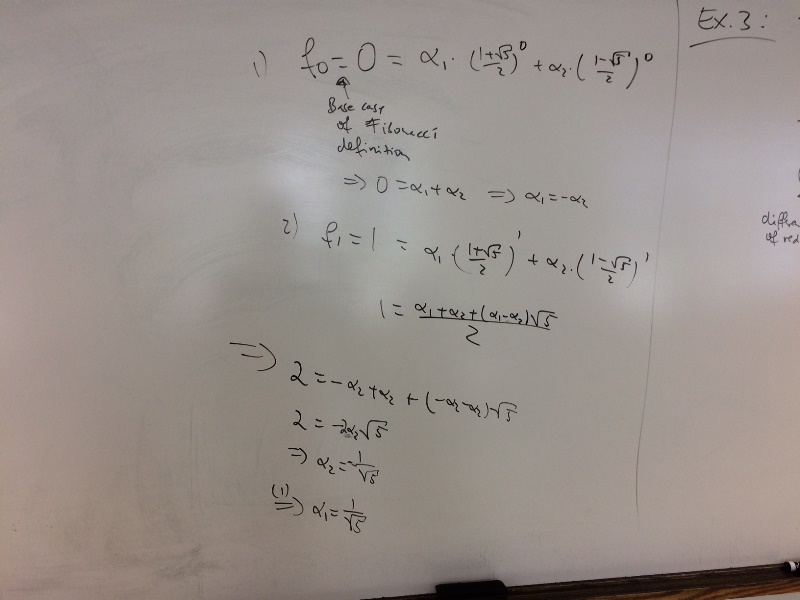 1) f₀ = 0 = α₁ · ((1+√5)/2)⁰ + α₂ · ((1-√5)/2)⁰
Base case
of Fibonacci
definition
=> 0 = α₁ + α₂ => α₁ = -α₂
2) f₁ = 1 = α₁ · ((1+√5)/2)¹ + α₂ · ((1-√5)/2)¹
1 = (α₁ + α₂ + (α₁ - α₂)√5)/2
=> 2 = -α₂ + α₂ + (-α₂ - α₂)√5
2 = -2α₂√5
=> α₂ = -1/√5
(1) => α₁ = 1/√5
Ex. 3:
of red